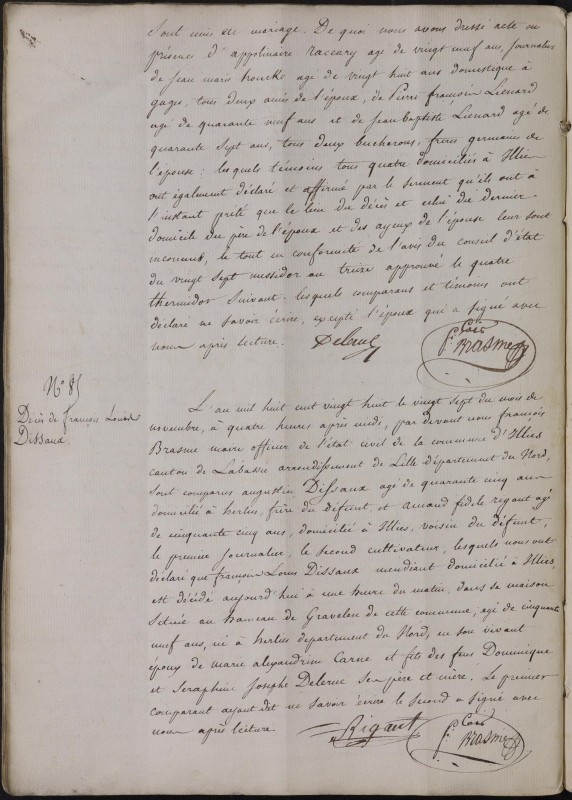 sont unis en mariage. De quoi nous avons dressé acte en
présence d'appolinaire raccary agé de vingt neuf ans, journalier
de jean marie honcke agé de vingt huit ans domestique à
gages, tous deux amis de l'époux, de Pierre françois Lienard
agé de quarante neuf ans et de jean baptiste Lienard agé de
quarante sept ans, tous deux bucherons, frères germains de
l'épouse; lesquels témoins tous quatre domiciliés à Illies
ont également déclaré et affirmé par le serment qu'ils ont à
l'instant prêté que le lieu du décès et celui du dernier
domicile du père de l'époux et des ayeux de l'épouse leur sont
inconnus, le tout en conformité de l'avis du conseil d'état
du vingt sept messidor an treize approuvé le quatre
thermidor suivant. lesquels comparans et témoins ont
déclaré ne savoir écrire, excepté l'époux qui a signé avec
nous après lecture. Deleruel
fois Brasme
N° 85
Décès de françois Louis
Dissaux
L'an mil huit cent vingt huit le vingt sept du mois de
novembre, à quatre heures après midi, par devant nous françois
Brasme maire officier de l'état civil de la commune d'Illies
canton de Labassée arrondissement de Lille département du Nord,
sont comparus augustin Dissaux agé de quarante cinq ans
domicilié à herlies, frère du défunt, et amand fidele rigaut agé
de cinquante cinq ans, domicilié à Illies, voisin du défunt;
le premier journalier, le second cultivateur, lesquels nous ont
déclaré que françois Louis Dissaux mendiant domicilié à Illies,
est décédé aujourd'hui à une heure du matin, dans sa maison
située au hameau de Gravelen de cette commune, agé de cinquante
neuf ans, né à herlies département du Nord, en son vivant
époux de marie alexandrine Carne et fils des feus Dominique
et Seraphine Joseph Delerue ses père et mère. Le premier
comparant ayant dit ne savoir écrire le second a signé avec
nous après lecture
Rigaut
fois Brasme